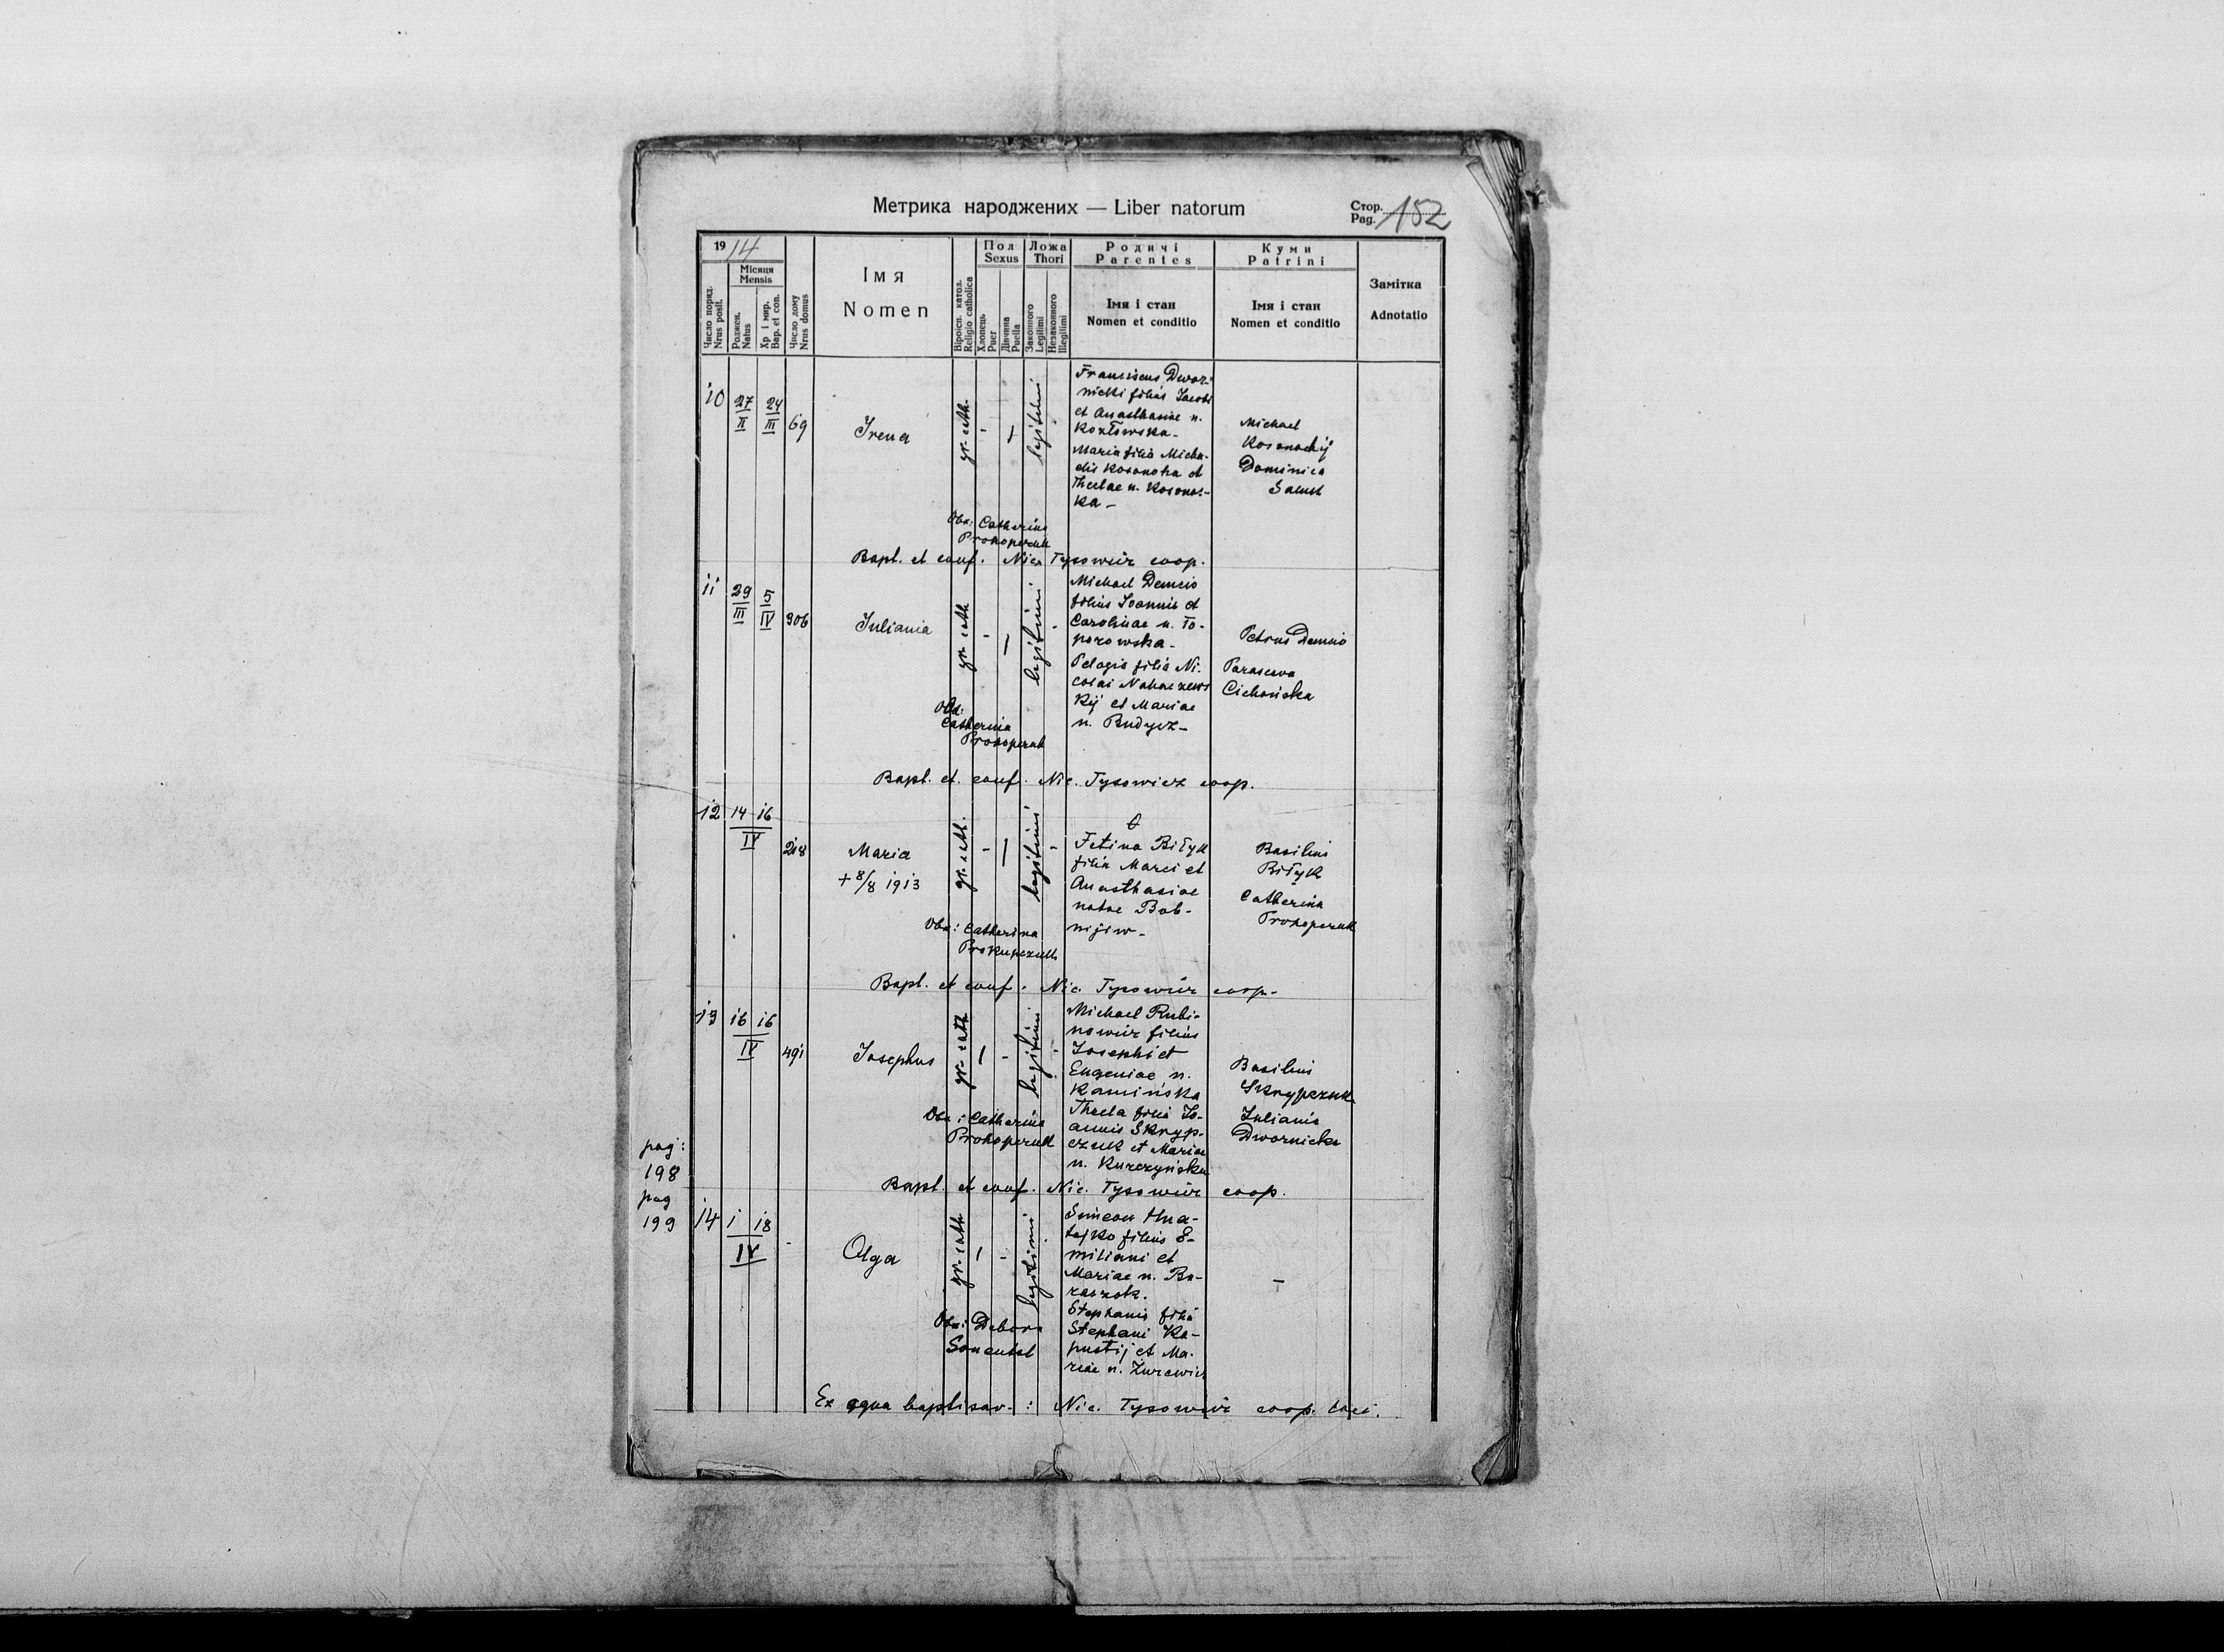 Метрика народжених — Liber natorum
Стор.
Pag. 152
1914
Місяця
Mensis
Число поряд.
Nrus posit.
Роджен.
Natus
Хр і мир.
Bap. et con.
Число дому
Nrus domus
Імя
Nomen
Віроісп. катол.
Religio catholica
Пол
Sexus
Хлопець
Puer
Дівчина
Puella
Ложа
Thori
Законного
Legitimi
Незаконного
Illegitimi
Родичі
Parentes
Імя і стан
Nomen et conditio
Куми
Patrini
Імя і стан
Nomen et conditio
Замітка
Adnotatio
10 27 II 24 III 69 Irena gr. cath. - 1 legitimi
Franciscus Dwor-
nicki filius Jacobi
et Anasthasiae n.
Kozłowska -
Maria filia Micha-
elis Kosonoha et
Theclae n.
ka -
Michael
Dominica
Obs: Catherina
Prokopczuk
Bapt. et conf. Nic. Tysowicz coop.
11 29 III 5 IV 306 Juliania gr. cath - 1 legitimi -
Michael Demcio
filius Joannis et
Carolinae n. To-
porowska -
Pelagia filia Ni-
colai
kij et Mariae
n. Budycz -
Petrus Demcio
Parascewa
Cichońska
Obs:
Catherina
Prokopczuk
Bapt. et conf. Nic. Tysowicz coop.
12 14 16 IV 218 Maria gr. cath. - 1 legitimi -
+ 8/8 1913
Fetina Biłyk
filia Marci et
Anasthasiae
natae Bob-
nijiw -
Basilius
Biłyk
Catherina
Prokopczuk
Obs: Catherina
Prokupczuk
Bapt. et conf. Nic. Tysowicz coop.
13 16 16 IV 491 Josephus gr. cath 1 - legitimi -
Michael Rubi-
nowicz filius
Josephi et
Eugeniae n.
Kamińska
Thecla filia Jo-
annis Skryp-
czuk et Mariae
n. Kurczyńska
Basilius
Skrypczuk
Juliania
Dwornicka
Obs: Catherina
Prokopczuk
Bapt. et conf. Nic. Tysowicz coop.
pag:
198
pag
199
14 1 18 IV - Olga gr. cath 1 - legitimi
Simeon Hna-
tejko filius E-
miliani et
Mariae n. Ba-
raszok.
Stephania filia
Stephani Ka-
pustij et Ma-
riae n. Zurawicz
-
Obs: Debora
Ex aqua baptisav.: Nic. Tysowicz coop. loci.